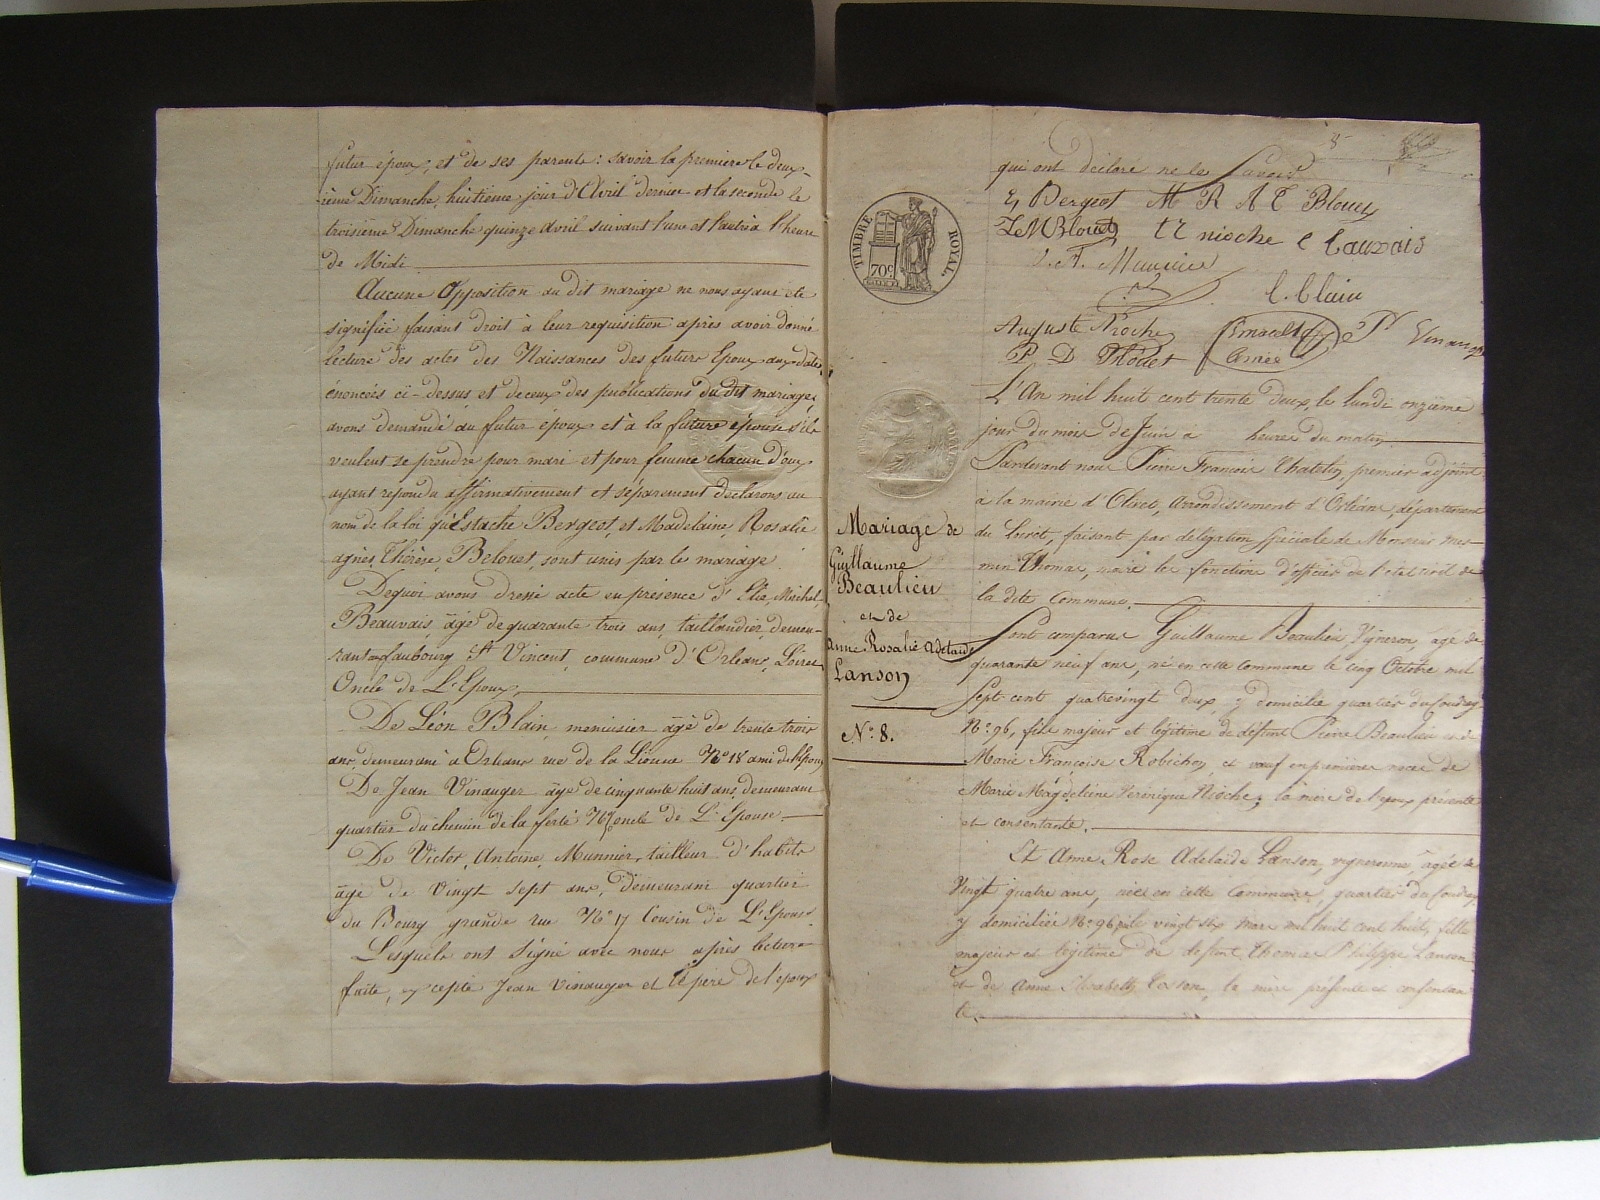 futur époux, et de ses parents : savoir la première le deux-
ième Dimanche, huitième jour d'Avril dernier et la seconde le
troisième Dimanche quinze avril suivant l'une et l'autre à l'heure
de Midi
Aucune Opposition au dit mariage ne nous ayant été
signifiée faisant droit à leur requisition après avoir donné
lecture des actes des Naissances des futurs Epoux aux dates
énoncées ci-dessus, et de ceux des publications du dit mariage,
avons demandé au futur époux et à la future épouse s'ils
veulent se prendre pour mari et pour femme chacun d'eux
ayant répondu affirmativement et séparement declarons au
nom de la loi qu'Estache Bergeot, et Madelaine, Rosalie
agnès, Thérèse, Belouet, sont unis par le mariage.
Dequoi avons dressé acte en présence d'Elie, Michel,
Beauvais, âgé de quarante trois ans, taillandier, demeu-
rant au faubourg St Vincent, commune d'Orleans, Loiret
Oncle de L'Epoux,
De Léon Blain, menuisier âgé de trente trois
ans, demeurant à Orleans rue de la Lionne No 18 ami de l'Epoux
De Jean Vinauger âgé de cinquante huit ans, demeurant
quartier du chemin de la ferté No oncle de L'Epouse
De Victor, Antoine, Munnier, tailleur d'habits
âgé de vingt sept ans, demeurant quartier
du Bourg grande rue No 17 Cousin de L'Epouse
Lesquels ont signé avec nous après lecture
faite, excepté Jean Vinauger et le père de l'époux
8
qui ont déclaré ne le Savoir
E Bergeot M R A T Blouet
Blouet nioche E Bauvais
V. A. Munnier
L. Blain
Auguste Nioche
P D
TIMBRE ROYAL.
70c
L'An mil huit cent trente deux, le lundi onzième
jour du mois de Juin à heures du matin
Pardevant nous Pierre Francois Chatelin, premier adjoint
à la mairie d'Olivet, Arrondissement d'Orléans, département
du Loiret, faisant par délégation spéciale de Monsieur mes-
min Thomas, maire les fonctions d'officier de l'etat civil de
la dite Commune.
Mariage de
Guillaume
Beaulieu
et de
Anne Rosalie Adelaide
Lanson
No 8.
Sont comparus Guillaume Beaulieu Vigneron, agé de
quarante neuf ans, né en cette Commune le cinq Octobre mil
Sept cent quatrevingt deux, y domicilié quartier du Coudray
No 96, fils majeur et légitime de défunt Pierre Beaulieu et de
Marie Françoise Robichon, et veuf en premières noces de
Marie Magdeleine Véronique Nioche, la mère de l'époux présente
et consentante.
Et Anne Rose Adelaide Lanson, vigneronne, agée de
Vingt quatre ans, née en cette Commune, quartier du Coudray
y domiciliée No 96, le vingt Six mars mil huit cent huit, fille
majeur et légitime de defunt Thomas Philippe Lanson
et de Anne Elisabeth, la mère présente et consentan
te.